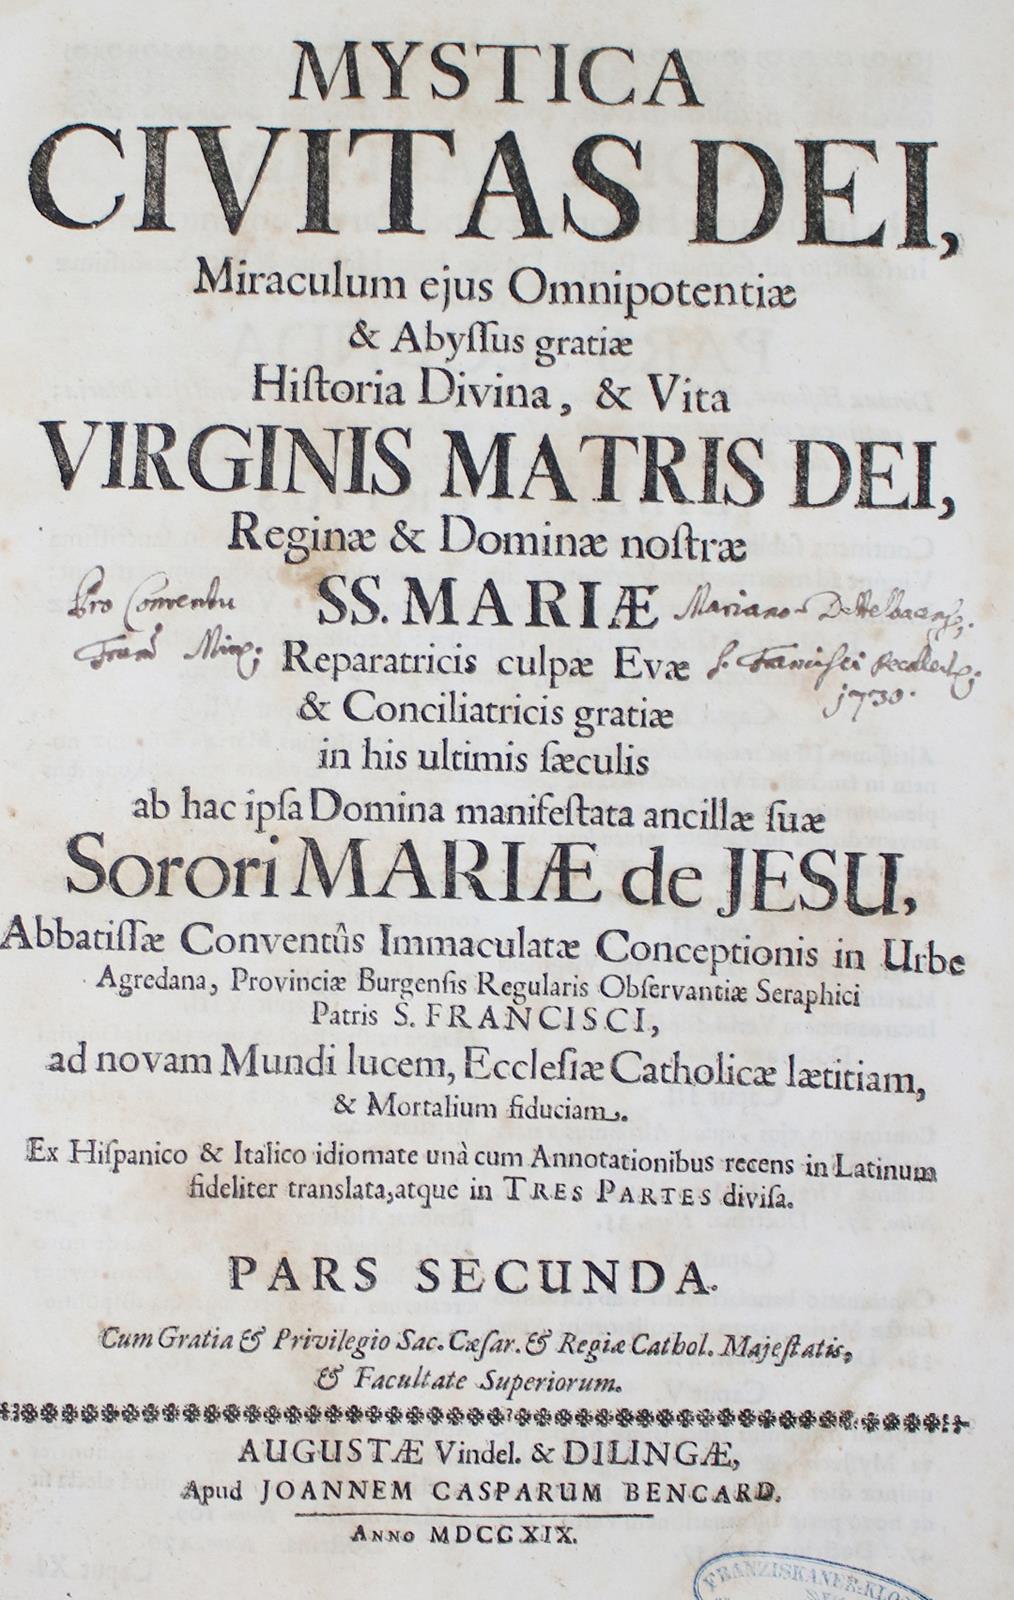 MYSTICA
CIVITAS DEI,
Miraculum ejus Omnipotentiæ
& Abyſſus gratiæ
Hiſtoria Divina, & Vita
VIRGINIS MATRIS DEI,
Reginæ & Dominæ noſtræ
SS. MARIÆ
Pro Conventu
Mariano-
Reparatricis culpæ Evæ
S. Francisci
1730.
& Conciliatricis gratiæ
in his ultimis ſæculis
ab hac ipſa Domina manifeſtata ancillæ ſuæ
Sorori MARIÆ de JESU,
Abbatiſſæ Conventûs Immaculatæ Conceptionis in Urbe
Agredana, Provinciæ Burgenſis Regularis Obſervantiæ Seraphici
Patris S. FRANCISCI,
ad novam Mundi lucem, Eccleſiæ Catholicæ lætitiam,
& Mortalium fiduciam.
Ex Hiſpanico & Italico idiomate unà cum Annotationibus recens in Latinum
fideliter translata, atque in TRES PARTES diviſa.
PARS SECUNDA.
Cum Gratia & Privilegio Sac. Cæſar. & Regiæ Cathol. Majeſtatis,
& Facultate Superiorum.
AUGUSTÆ Vindel. & DILINGÆ,
Apud JOANNEM CASPARUM BENCARD.
ANNO MDCCXIX.
FRANZISKANER-KLO